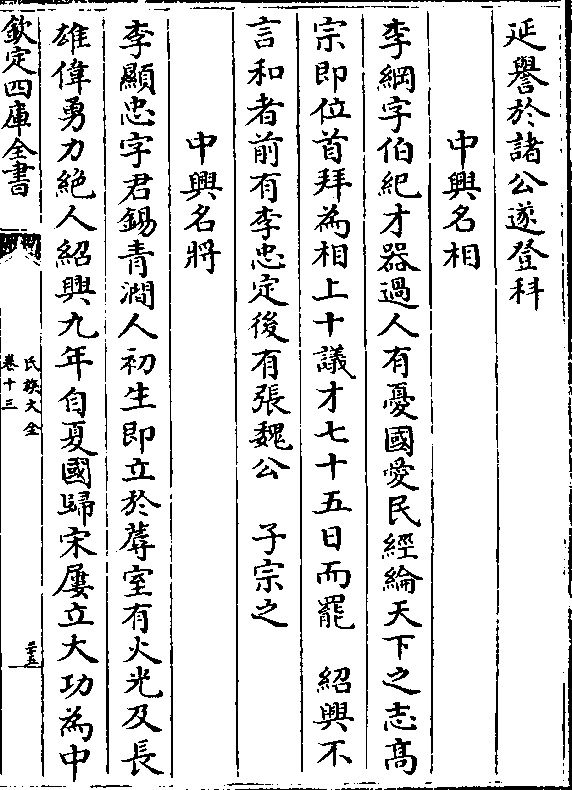 延譽於諸公遂登科
中興名相
李綱字伯紀才器過人有憂國愛民經綸天下之志髙
宗即位首拜為相上十議才七十五日而罷　紹興不
言和者前有李忠定後有張魏公　子宗之
中興名將
李顯忠字君錫青澗人初生即立於蓐室有火光及長
雄偉勇力絶人紹興九年自夏國歸宋屢立大功為中
欽定四庫全書
氏族大全
卷十三